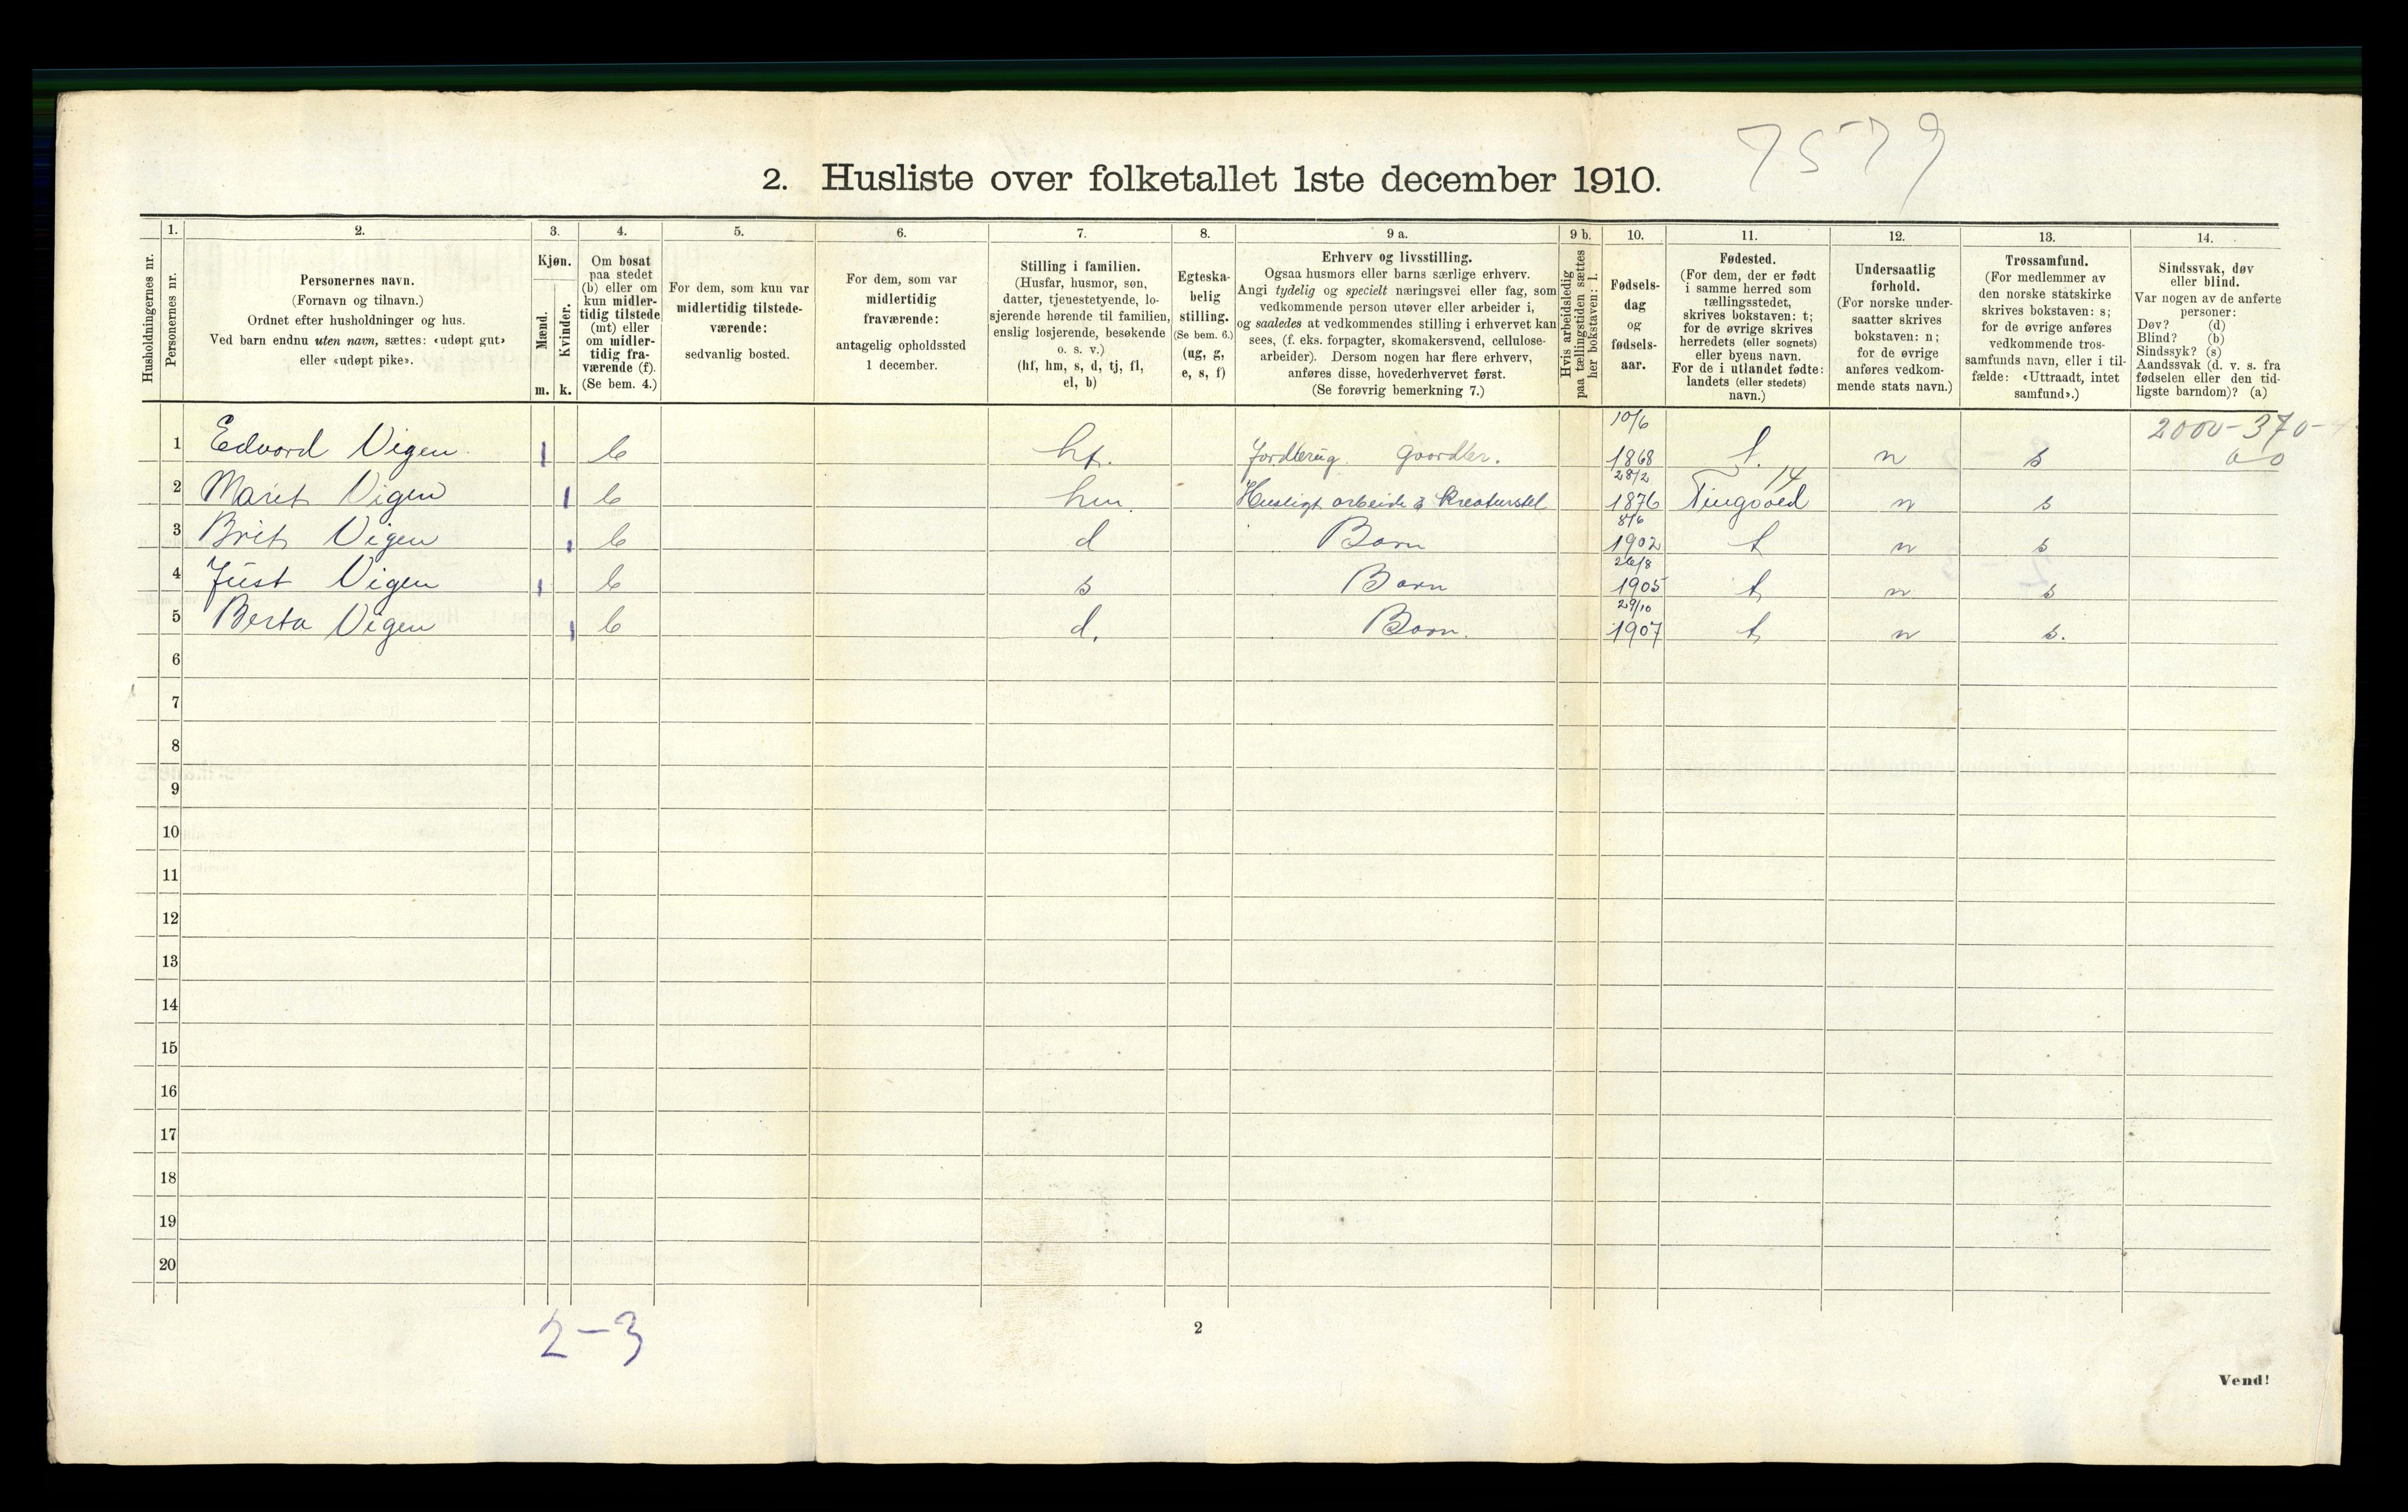 7579
2. Husliste over folketallet 1ste december 1910.
Husholdningernes nr.
1.
Personernes nr.
2.
Personernes navn.
(Fornavn og tilnavn.)
Ordnet efter husholdninger og hus.
Ved barn endnu uten navn, sættes: «udøpt gut»
eller «udøpt pike».
3.
Kjøn.
Mænd.
Kvinder.
m. k.
4.
Om bosat
paa stedet
(b) eller om
kun midler-
tidig tilstede
(mt) eller
om midler-
tidig fra-
værende (f).
(Se bem. 4.)
5.
For dem, som kun var
midlertidig tilstede-
værende:
sedvanlig bosted.
6.
For dem, som var
midlertidig
fraværende:
antagelig opholdssted
1 december.
7.
Stilling i familien.
(Husfar, husmor, søn,
datter, tjenestetyende, lo-
sjerende hørende til familien,
enslig losjerende, besøkende
o. s. v.)
(hf, hm, s, d, tj, fl,
el, b)
8.
Egteska-
belig
stilling.
(Se bem. 6.)
(ug, g,
e, s, f)
9 a.
Erhverv og livsstilling.
Ogsaa husmors eller barns særlige erhverv.
Angi tydelig og specielt næringsvei eller fag, som
vedkommende person utøver eller arbeider i,
og saaledes at vedkommendes stilling i erhvervet kan
sees, (f. eks. forpagter, skomakersvend, cellulose-
arbeider). Dersom nogen har flere erhverv,
anføres disse, hovederhvervet først.
(Se forøvrig bemerkning 7.)
9 b.
Hvis arbeidsledig
paa tællingstiden sættes
her bokstaven: l.
10.
Fødsels-
dag
og
fødsels-
aar.
11.
Fødested.
(For dem, der er født
i samme herred som
tællingsstedet,
skrives bokstaven: t;
for de øvrige skrives
herredets (eller sognets)
eller byens navn.
For de i utlandet fødte:
landets (eller stedets)
navn.)
12.
Undersaatlig
forhold.
(For norske under-
saatter skrives
bokstaven: n;
for de øvrige
anføres vedkom-
mende stats navn.)
13.
Trossamfund.
(For medlemmer av
den norske statskirke
skrives bokstaven: s;
for de øvrige anføres
vedkommende tros-
samfunds navn, eller i til-
fælde: «Uttraadt, intet
samfund».)
14.
Sindssvak, døv
eller blind.
Var nogen av de anførte
personer:
Døv? (d)
Blind? (b)
Sindssyk? (s)
Aandssvak (d. v. s. fra
fødselen eller den tid-
ligste barndom)? (a)
1 Edvard Vigen 1 b hf. Jordbrug Gaardbr. 10/6 1868 t. n s 2000-370-
2 Marit Vigen 1 b hm. Husligt arbeide & Kreaturstel 28/2 1876 Tingvold 14 n s
3 Brit Vigen 1 b d Barn 8/6 1902 t n s
4 Just Vigen 1 b s Barn 26/8 1905 t n s
5 Berta Vigen 1 b d. Barn. 29/10 1907 t n s.
6
7
8
9
10
11
12
13
14
15
16
17
18
19
20
2-3
2
Vend!